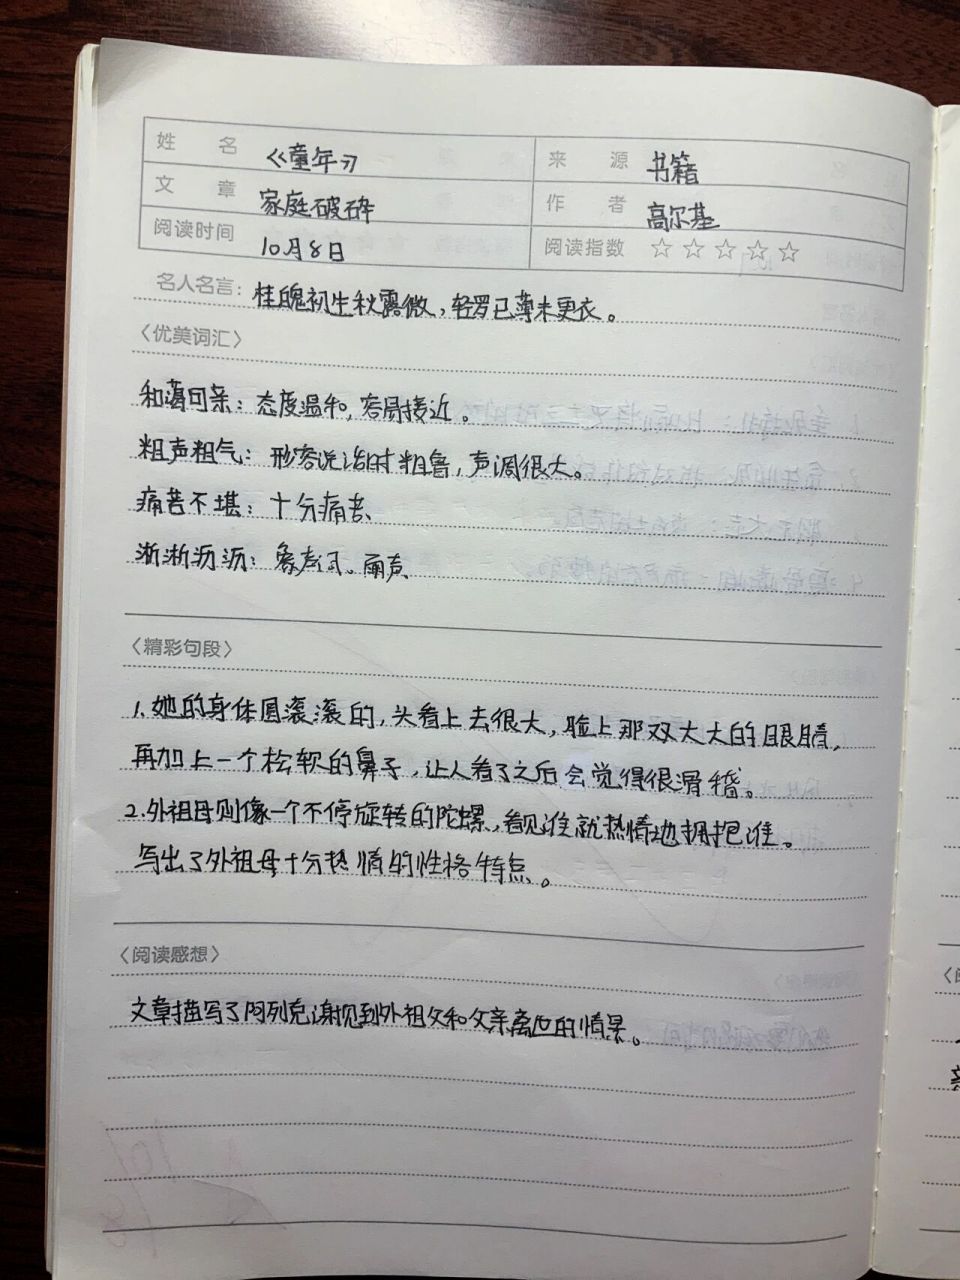 姓 名 《童年》 来 源 书籍
文 章 家庭破碎 作 者 高尔基
阅读时间 10月8日 阅读指数 ☆☆☆☆☆
名人名言: 桂魄初生秋露微,轻罗已薄未更衣。
〈优美词汇〉
和蔼可亲:态度温和,容易接近。
粗声粗气:形容说话时粗鲁,声调很大。
痛苦不堪:十分痛苦
淅淅沥沥:象声词。雨声
〈精彩句段〉
1.她的身体圆滚滚的,头看上去很大,脸上那双大大的眼睛,
再加上一个松软的鼻子,让人看了之后会觉得很滑稽。
2.外祖母则像一个不停旋转的陀螺,看见谁就热情地拥抱谁。
写出了外祖母十分热情的性格特点。
〈阅读感想〉
文章描写了阿列克谢见到外祖父和父亲离世的情景。